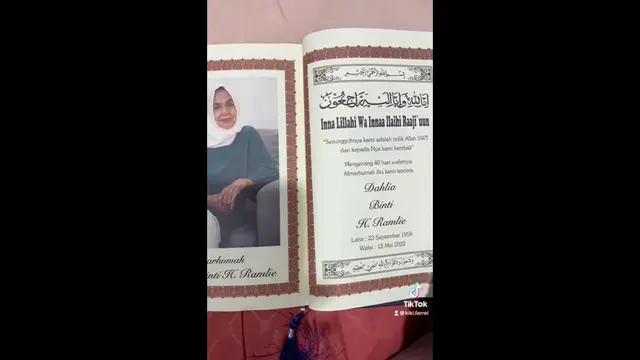 arkumah
Binti H. Ramlie
بِسْمِ اللَّهِ الرَّحْمَنِ الرَّحِيمِ
إِنَّا لِلَّهِ وَإِنَّا إِلَيْهِ رَاجِعُونَ
Inna Lillahi Wa Innaa Ilaihi Raaji'uun
"Sesungguhnya kami adalah milik Allah SWT
dan kepada-Nya kami kembali"
Mengenang 40 hari wafatnya
Almarhumah ibu kami tercinta
Dahlia
Binti
H. Ramlie
Lahir : 23 September 1958
Wafat : 12 Mei 2022
TikTok
@kiki.farrel